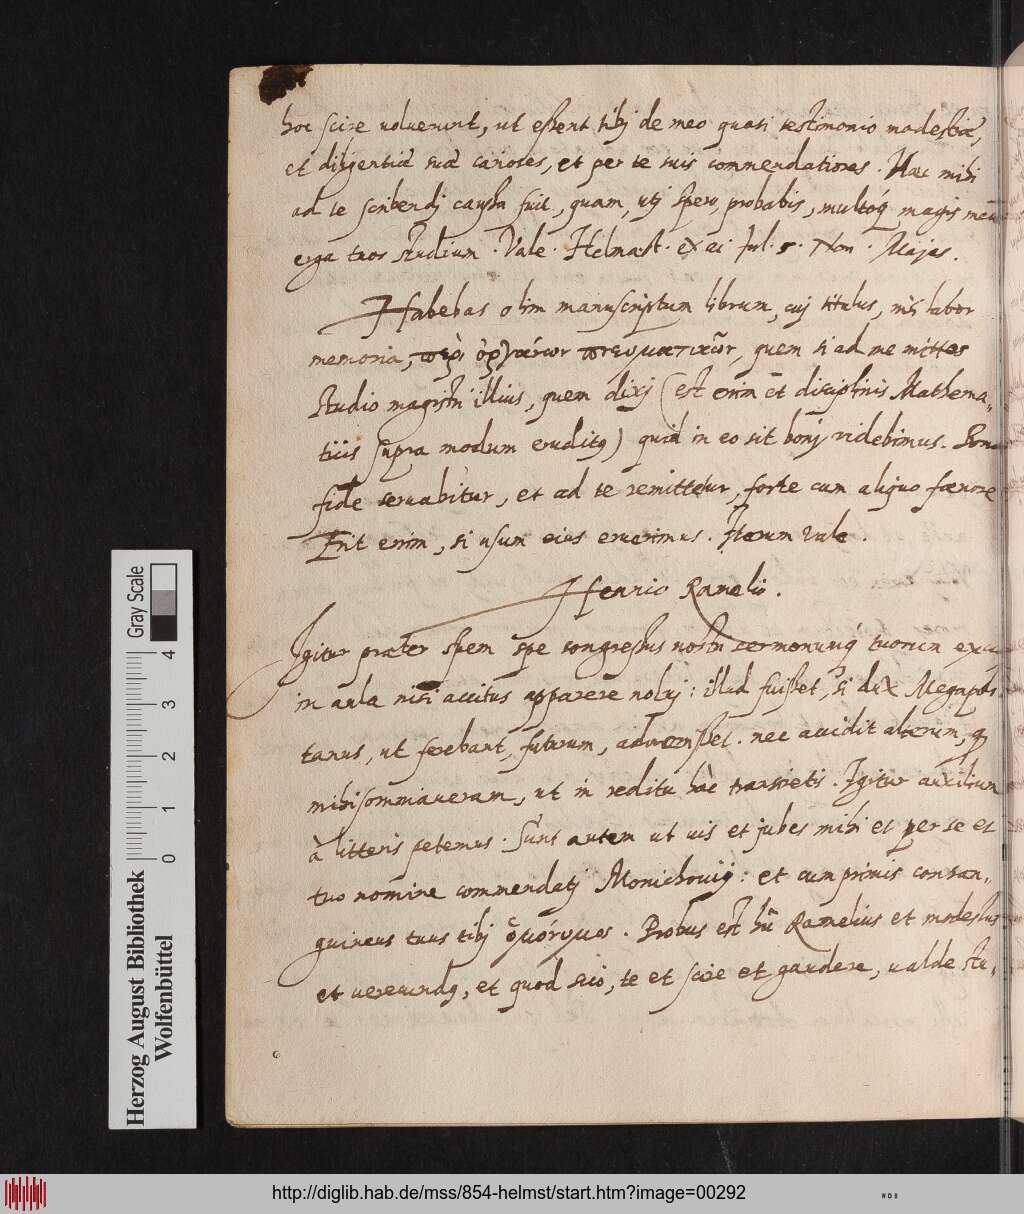 hoc scire voluerunt, ut essent tibj de meo quasi testimonio modestiæ,
et diligentiæ suæ cariores, et per te suis commendatiores. Hæc mihi
ad te scribendj caussa fuit, quam, utj spero, probabis, multoq́ magis meũ
erga tuos studium. Vale. Helmæst. ex ac Jul. 5. Non. Majas.
Habebas olim manuscriptum librum, cuj titulus, nj labor
memoria, περὶ ὀργάνων πνευματικῶν, quem si ad me mittes
studio magistri illius, quem dixj (est enim et disciplinis Mathema-
ticis supra modum eruditq) quid in eo sit bonj videbimus. Bona
fide servabitur, et ad te remittetur, forte cum aliquo fœnore
Erit enim, si usum eius eruerimus. Iterum Vale.
Henrico Ramelio.
Igitur præter spem spe congressus nostri sermonumq́ tuorum
in aula nisi accitus apparere noluj: illud fuisset, si dux Megapoli-
tanus, ut ferebant, futurum, advenisset. nec accidit alterum, q
mihi somniaveram, ut in reditu hàc transietis. Igitur auxilium
à litteris petemus. Sunt autem ut vis et jubes mihi et per se et
tuo nomine commendatj Monichovij: et cum primis consan-
guineus tuus tibj ὁμώνυμος. Probus est Ramelius et modestus
et verecundq, et quod scio, te et scire et gaudere, valde stu-
Gray Scale
0 1 2 3 4
Herzog August Bibliothek
Wolfenbüttel
http://diglib.hab.de/mss/854-helmst/start.htm?image=00292